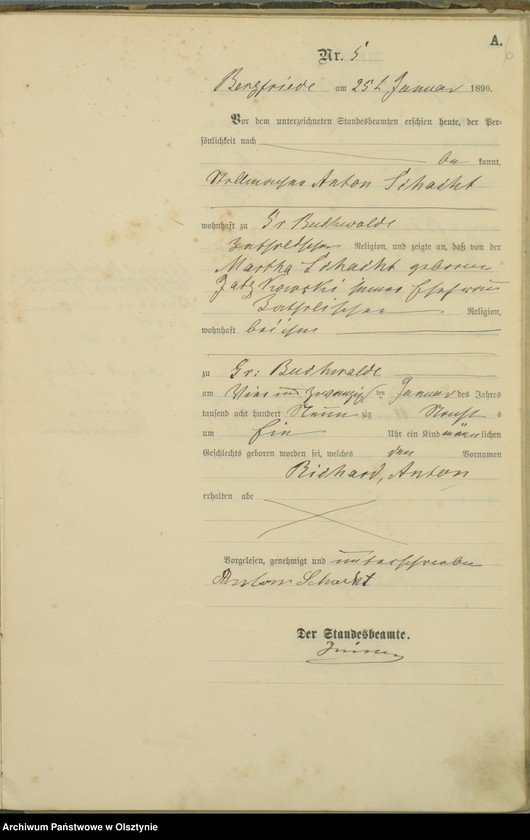 A.
6
Nr. 5
Bergfriede am 25t Januar 1890.
Vor dem unterzeichneten Standesbeamten erschien heute, der Per-
sönlichkeit nach
be kannt,
Anton Schacht
wohnhaft zu Gr Buchwalde
katholischer Religion, und zeigte an, daß von der
Martha Schacht geborene
seiner Ehefrau
Katholischer Religion,
wohnhaft bei ihm
zu Gr: Buchwalde
am Vier und zwanzig ten Januar des Jahres
tausend acht hundert Neun zig Nachts
um Ein Uhr ein Kind männlichen
Geschlechts geboren worden sei, welches den Vornamen
Richard, Anton
erhalten abe
Vorgelesen, genehmigt und unterschrieben
Anton Schacht
Der Standesbeamte.
Archiwum Państwowe w Olsztynie